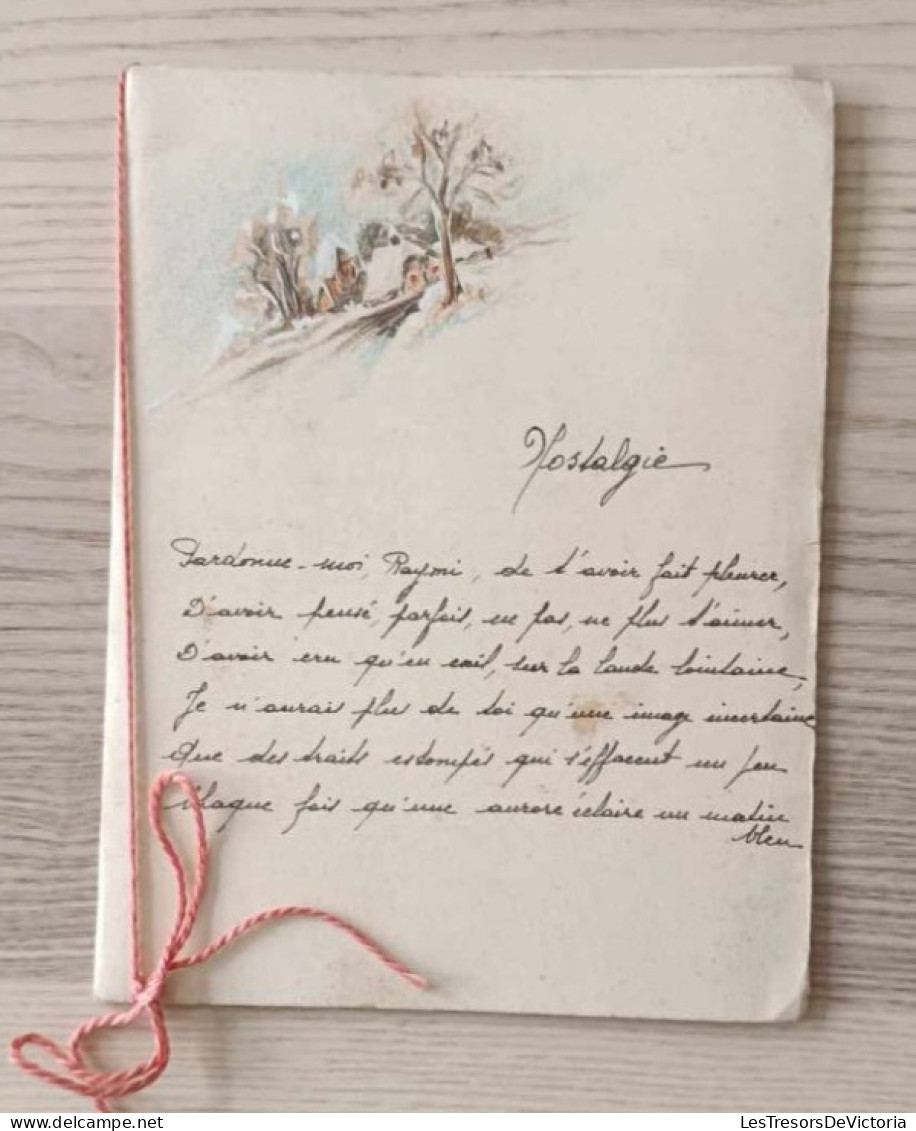 Nostalgie
Pardonne-moi, Raymi, de t'avoir fait pleurer,
D'avoir pensé, parfois, ne pas, ne plus t'aimer,
D'avoir cru qu'en exil, sur la lande lointaine,
Je n'aurais plus de toi qu'une image incertaine
Que des traits estompés qui s'effacent un peu
Chaque fois qu'une aurore éclaire un matin
bleu
LesTresorsDeVictoria